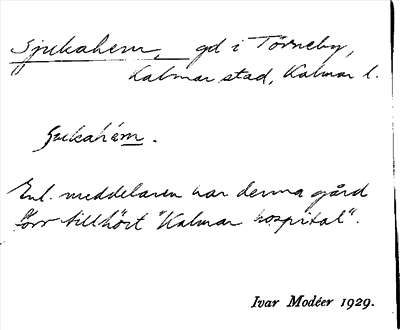 Sjukahem, gd i Törneby,
Kalmar stad, Kalmar l.
Sukahém.
Enl. meddelaren har denna gård
förr tillhört "Kalmar hospital".
Ivar Modéer 1929.